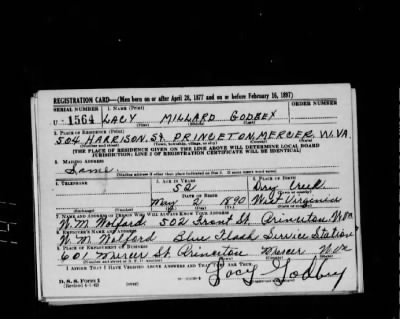 REGISTRATION CARD—(Men born on or after April 28, 1877 and on or before February 16, 1897)
SERIAL NUMBER 1. NAME (Print) ORDER NUMBER
U 1564 LACY MILLARD GODBEY
(First) (Middle) (Last)
2. PLACE OF RESIDENCE (Print)
504 HARRISON. St. PRINCETON, MERCER, W.VA.
(Number and street) (Town, township, village, or city) (County) (State)
[THE PLACE OF RESIDENCE GIVEN ON THE LINE ABOVE WILL DETERMINE LOCAL BOARD
JURISDICTION; LINE 2 OF REGISTRATION CERTIFICATE WILL BE IDENTICAL]
3. MAILING ADDRESS
Same
[Mailing address if other than place indicated on line 2. If same insert word same]
4. TELEPHONE 5. AGE IN YEARS 6. PLACE OF BIRTH
52 Dry Creek
DATE OF BIRTH (Town or county)
May 2 1890 West Virginia
(Exchange) (Number) (Mo.) (Day) (Yr.) (State or country)
7. NAME AND ADDRESS OF PERSON WHO WILL ALWAYS KNOW YOUR ADDRESS
W. M. Walford. 502 Front St. Princeton W Va
8. EMPLOYER'S NAME AND ADDRESS
W. M. Walford Blue Flash Service Station
9. PLACE OF EMPLOYMENT OR BUSINESS
601 Mercer St. Princeton Mercer W Va
(Number and street or R. F. D. number) (Town) (County) (State)
I AFFIRM THAT I HAVE VERIFIED ABOVE ANSWERS AND THAT THEY ARE TRUE.
D. S. S. Form 1
(Revised 4-1-42) (over) Lacy Godbey